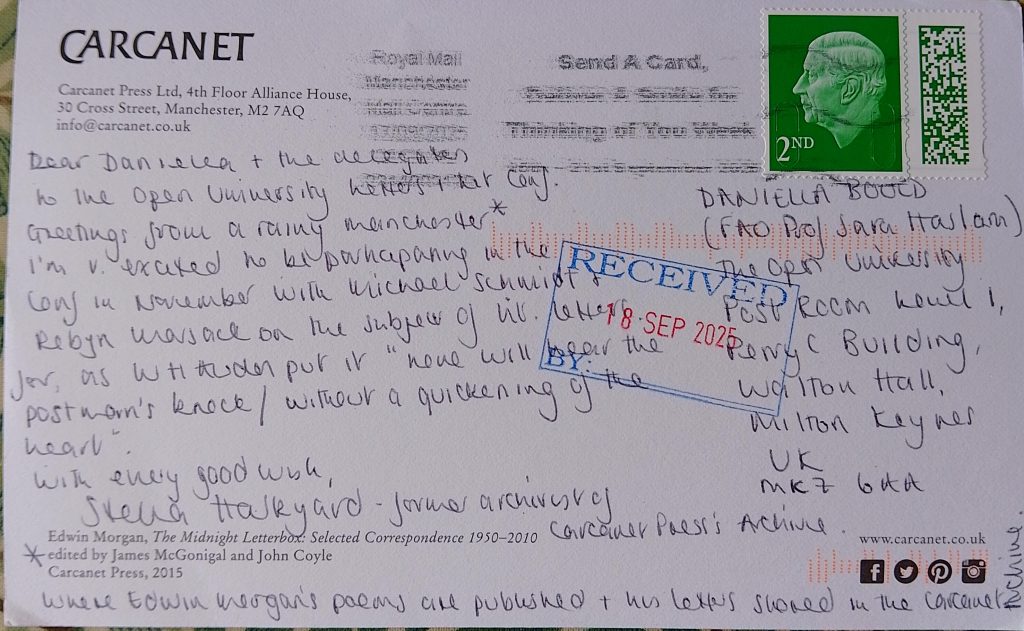 CARCANET
Carcanet Press Ltd, 4th Floor Alliance House,
30 Cross Street, Manchester, M2 7AQ
info@carcanet.co.uk
Royal Mail
Manchester
Send A Card,
Thinking Of You Week
2ND
Dear Daniella + the delegates
to the Open University Letters + Lit Conf.
Greetings from a rainy Manchester*
I'm v. excited to be participating in the
Conf in November with Michael Schmidt +
Robyn Marsack on the subject of lit. letters.
for, as WH Auden put it "none will hear the
postman's knock / without a quickening of the
heart".
With every good wish,
Stella Halkyard - former archivist of
Carcanet Press's Archive.
DANIELLA
(FAO Prof Sara Haslam)
The Open University
Post Room Level 1,
Perry C Building,
Walton Hall,
Milton Keynes
UK
MK7 6AA
RECEIVED
18 SEP 2025
BY:
Edwin Morgan, The Midnight Letterbox: Selected Correspondence 1950–2010
* edited by James McGonigal and John Coyle
Carcanet Press, 2015
www.carcanet.co.uk
Where Edwin Morgan's poems are published + his letters stored in the Carcanet Archive.